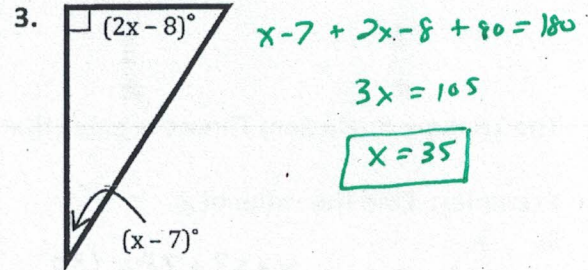 3.
(2x – 8)°
x-7 + 2x-8 + 90 = 180
3x = 105
x = 35
(x – 7)°